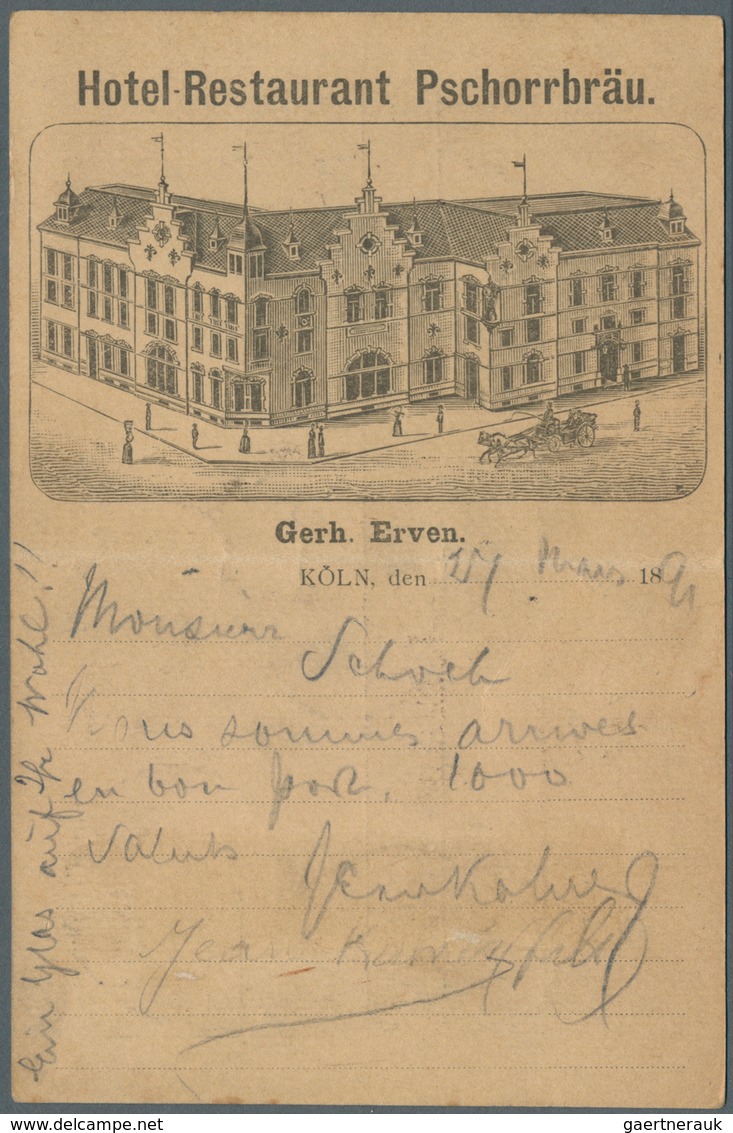 Hotel-Restaurant Pschorrbräu.
Gerh. Erven.
KÖLN, den 27 Mars 1891
Monsieur
Schoch
Nous sommes arrives
en bon port. 1000
Saluts
Jean
Ein Glas auf Ihr Wohl!!
delcampe.net
gaertnerauk